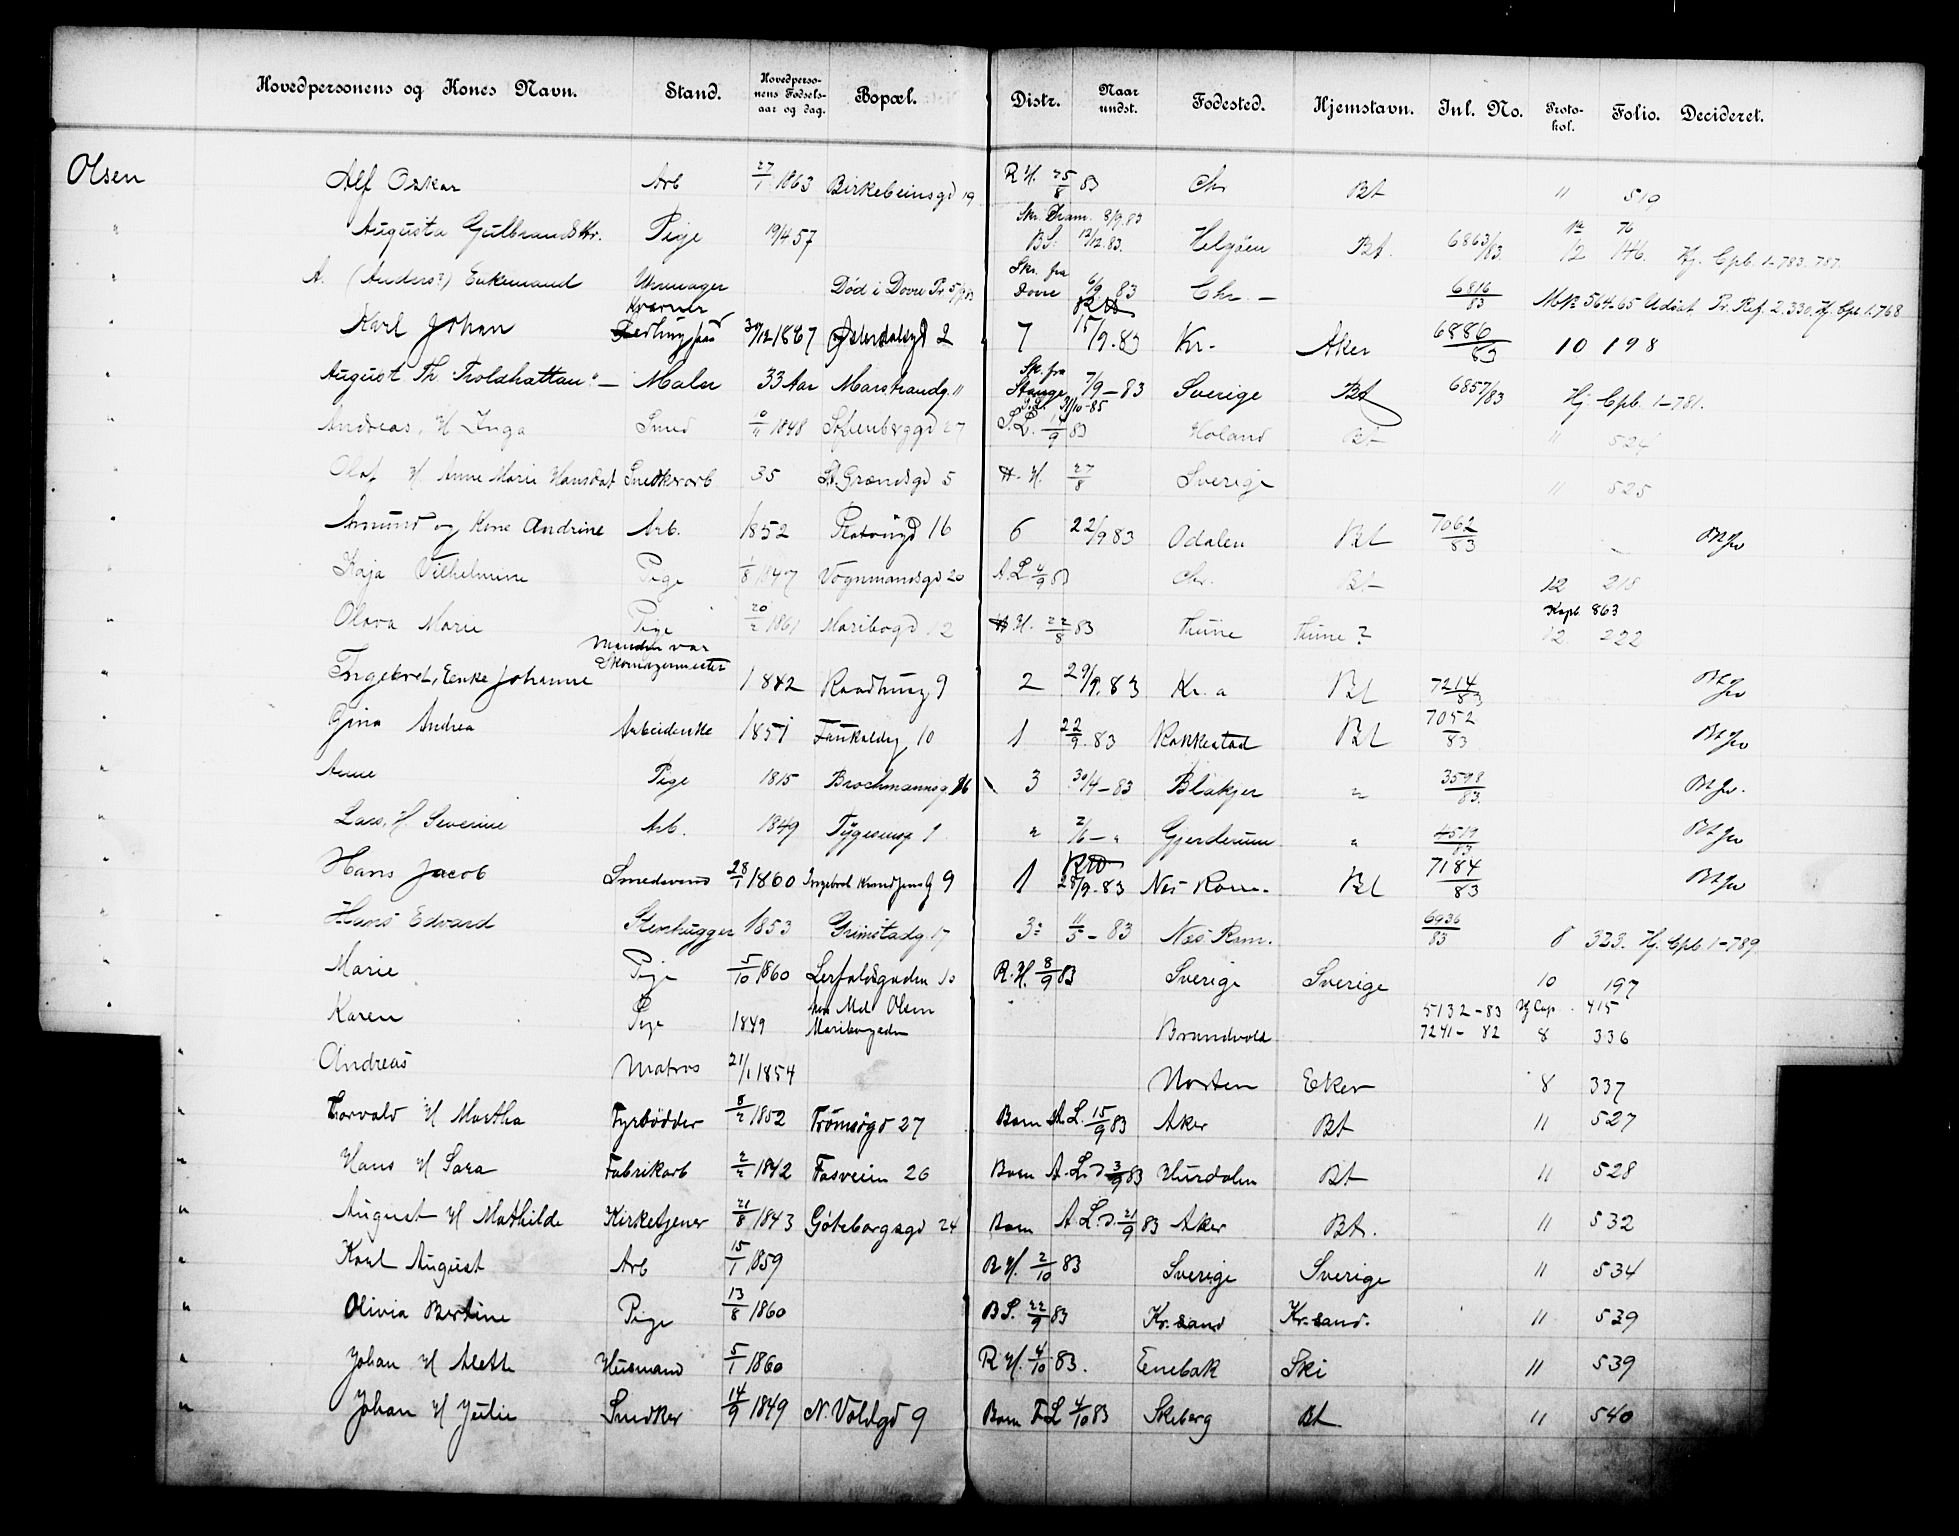 Hovedpersonens og Kones Navn. Stand. Hovedperso-nens Fødsels-aar og dag. Bopæl. Distr. Naar undst. Fødested. Hjemstavn. Inl. No. Proto-kol. Folio. Decideret.
Olsen Alf Oskar Arb 27/1 1863 Birkebeinsgd 19 R.H. 25/8 83 Chr Bt 11 519
" Augusta Gulbrandsdtr. Pige 19/4 57 Skr. Fram. 8/9.83 B.S. 12/12.83. Helgøen Bt. 6863/83 12 12 76 146. Hj. Cpb. 1-783. 787.
" A. (Anders?) Enkemand Urmager Død i Dovre Skr. fra Dovre 6/9 83 Chr. – 6816/83 564.65 Udsat Pr. Ref. 2.330. Hj. Cpb 1.768
" Karl Johan 30/12 1867 Østerdalsgd 2 7 15/9.83 Kr. Aker 6886/83 10 198
" August Th. "Troldhattan" – Maler 33 Aar Marstrandg. 11 Sk. fra Stange 7/9–83 Sverige Bt 6857/83 Hj. Cpb. 1–781.
" Andreas, H Inga Smed 1848 27 S.L. 14/9 83 Høland Bt 11 524
" Olaf H. Anne Marie Hansdat Snedkerarb 35 St. Grændsgd 5 H. 27/8 Sverige 11 525
" Amund og Kone Andrine Arb. 1852 16 6 22/9 83 Odalen Bt 7062/83
" Kaja Vilhelmine Pige 1/8 1847 Vognmandsgd 20 A.L 4/9 83 Chr. Bt 12 218
" Olava Marie Pige 20/2 1861 Maribogd 12 H. 22/8 83 Hurne? Kopb 863 12 222
" Ingebret, Enke Johanne Manden var Skomagermester 1842 Raadhusg 9 2 29/9.83 Kr.a Bt 7214/83
" Gina Andrea Arbeiderske 1851 10 1 22/9.83 Rakkestad Bt 7052/83
" Anne Pige 1815 Brochmannsg. 16 3 30/4–83 Blakjer " 3598/83.
" Lars, H. Severine Arb. 1849 Tygesensg 1 " 2/6– " Gjerderum " 4519/83
" Hans Jacob Smedsvend 28/1 1860 9 1 28/9.83 Nes Rom. Bt 7184/83
" Hans Edvard Stenhugger 1853 Grimstadg. 17 3 11/5–83 Nes Rom. 6936/83 8 323. Hj. Cpb. 1–789.
" Marie Pige 5/10 1860 Lerfaldsgaden 10 R.H. 8/9 83 Sverige Sverige 10 197
" Karen Pige 1849 hos Md Olsen Maribogaden Brandvold 5132–83 7241–82 Hj Cop 8 415 336
" Andreas Matros 21/1 1854 Norten Eker 8 337
" Thorvald H Martha Fyrbødder 8/2 1852 Tromsøgd 27 Barn A.L. 15/9 83 Aker Bt 11 527
" Hans H Sara Fabrikarb 2/2 1842 Fosveien 26 Barn A.L.D 3/9 83 Hurdalen Bt 11 528
" August H Mathilde Kirketjener 21/8 1843 Gøteborgsgd 24 Barn A.L.D. 21/9 83 Aker Bt. 11 532
" Karl August Arb 15/1 1859 R H. 2/10 83 Sverige Sverige 11 534
" Olivia Bertine Pige 13/8 1860 B S. 22/9 83 Kr.sand Kr.sand. 11 539
" Johan H Aleth Husmand 5/1 1860 R H. 4/10 83. Enebak Ski 11 539
" Johan H Julie Snedker 14/9 1849 N. Voldgd 9 Barn F L 4/10 83 Skeberg Bt 11 540